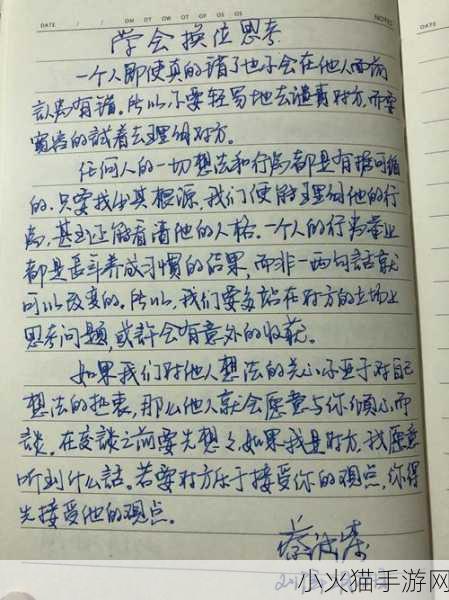 DATE / /
MON TUE WED THU FRI SAT SUN
NOTES
DATE
学会换位思考
一个人即使真的错了也不会在他人面前
认为有错。所以不要轻易地去谴责对方,而要
宽容的試着去理解对方。
任何人的一切想法和行為都是有据可循
的。只要找出其根源,我们便能理解他的行
為,甚至还能看清他的人格。一个人的行为举止
都是長年养成习惯的后果,而非一两句話就
可以改变的。所以,我們要多站在对方的立场上
思考问题,或許会有意外的收获。
如果我们对他人想法的关心不亚于对自己
想法的热衷,那么他人就会愿意与你倾心而
談。在交談之前要先想々,如果我是对方,我愿意
听到什么話。若要对方乐于接受你的观点,你得
先接受他的观点。
小火猫手游网